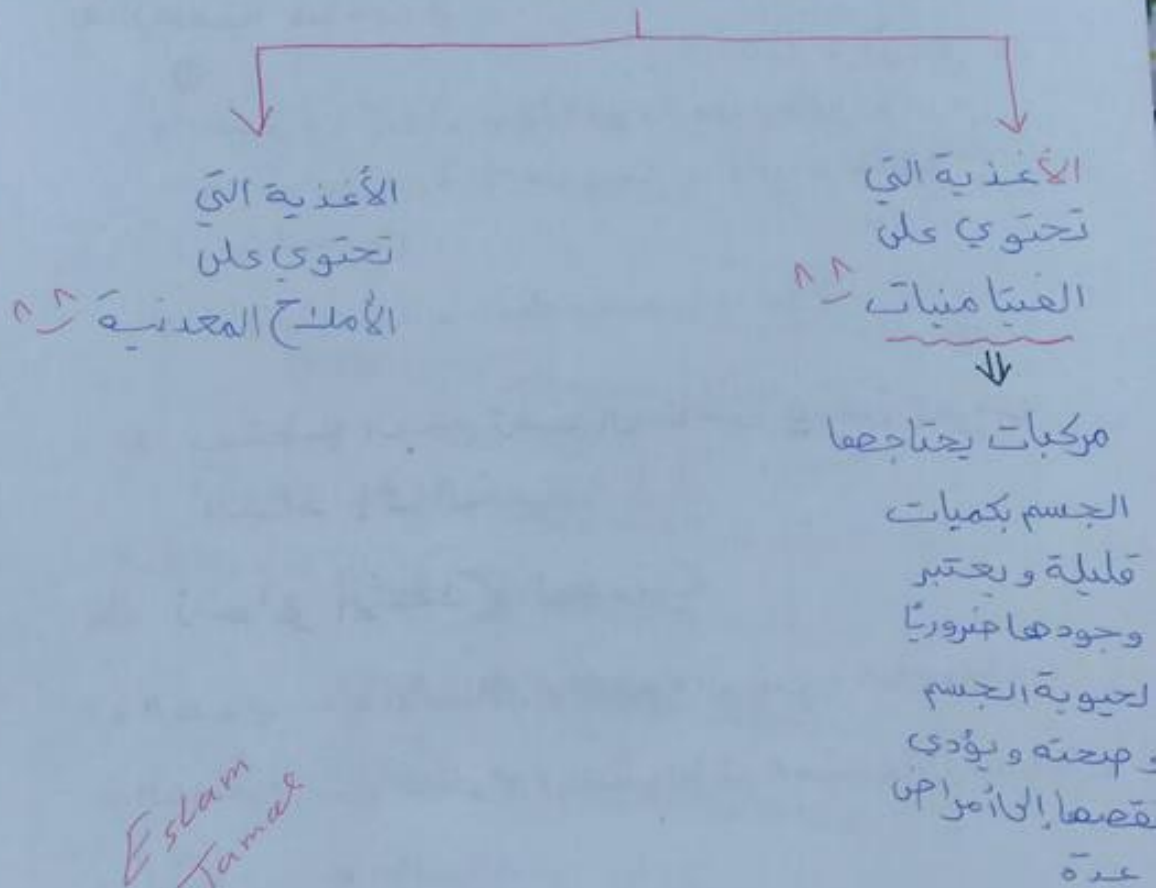 الأغذية التي
تحتوي على
الفيتامينات
مركبات يحتاجها
الجسم بكميات
قليلة و يعتبر
وجودها ضروريًا
لحيوية الجسم
و صحته و يؤدي
نقصها إلى أمراض
عدة
الأغذية التي
تحتوي على
الأملاح المعدنية
Eslam
Jamal